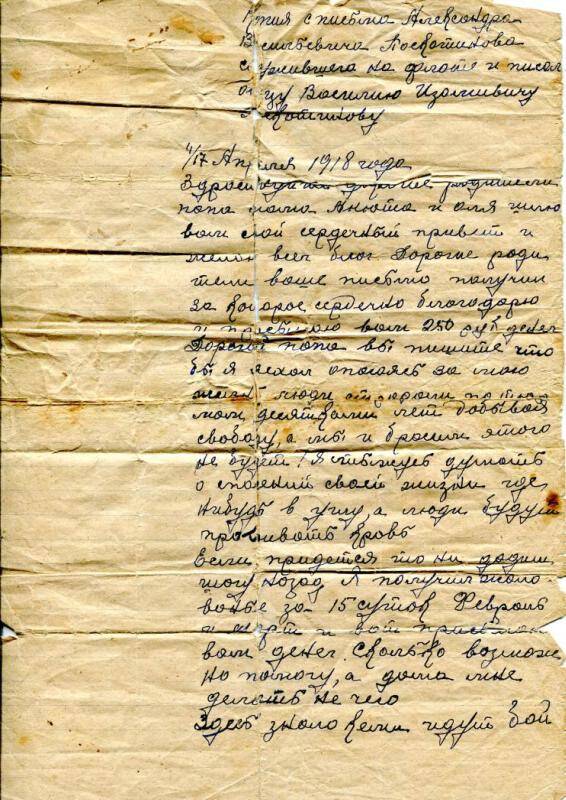 Копия с письма Александра
Васильевича Лоскотникова
служившего на флоте и писал
отцу Василию Изотиевичу
4/17 Апреля 1918 года
Здравствуйте дорогие родители
папа мама Анюта и Оля шлю
вам мой сердечный привет и
желаю всех благ. Дорогие роди
тели ваше письмо получил
за которое сердечно благодарю
и присылаю вам 250 руб денег
Дорогой папа вы пишите что
бы я ехал опасаясь за мою
жизнь люди
десятками лет добывая
свободу, а мы и бросим этого
не будет! Я думать
о спасении своей жизни где
нибудь в углу, а люди будут
проливать кровь
Если придется то ни
шагу назад Я получил жало
ванье за 15 суток Февраль
и март и вот присылаю
вам денег. Сколько возмож
но помогу, а дома мне
делать не чего
Здесь идут бои